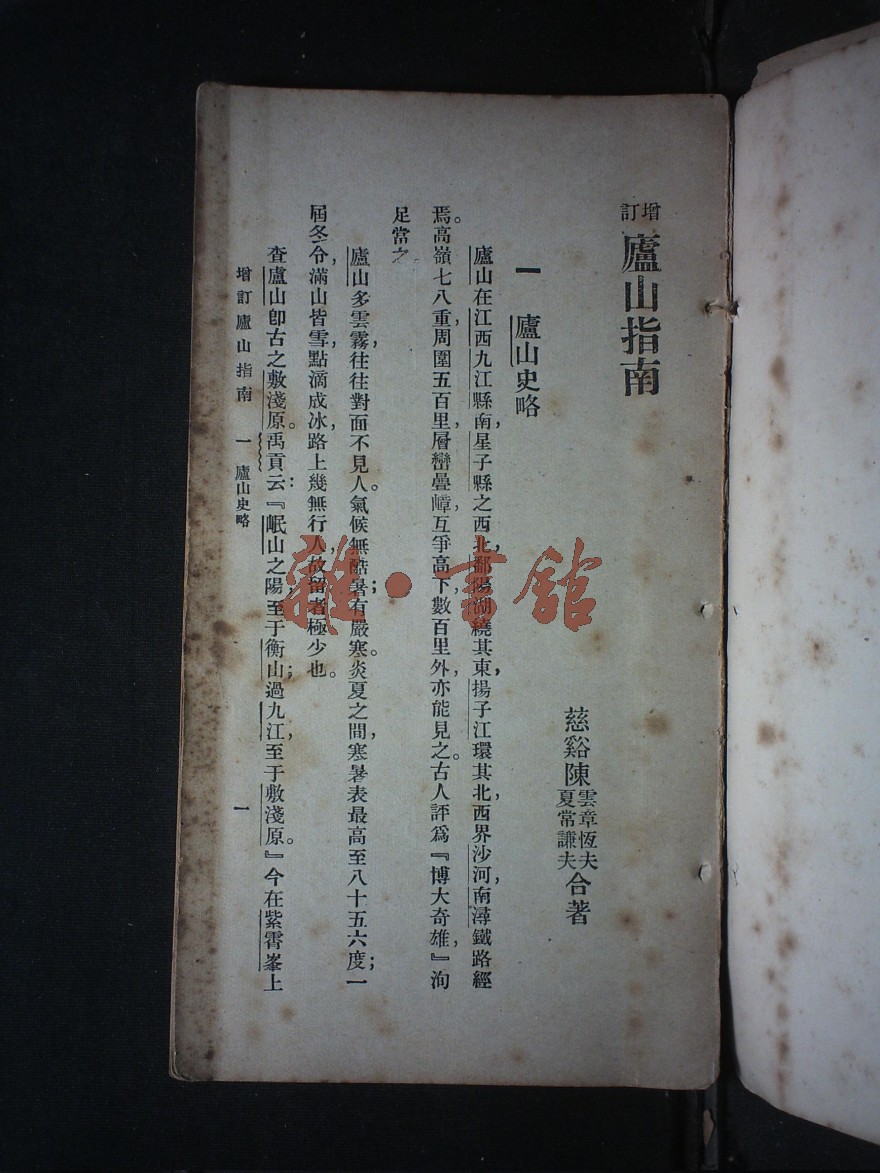 增訂 廬山指南
慈谿陳雲章恆夫夏常謙夫合著
一 廬山史略
廬山在江西九江縣南，星子縣之西北，鄱陽湖繞其東，揚子江環其北，西界沙河，南潯鐵路經
焉。高嶺七八重，周圍五百里，層巒疊嶂，互爭高下，數百里外，亦能見之。古人評爲『博大奇雄，』洵
足當之
廬山多雲霧，往往對面不見人。氣候無酷暑；有嚴寒。炎夏之間，寒暑表最高至八十五六度；一
屆冬令，滿山皆雪，點滴成冰，路上幾無行人，故留者極少也。
查廬山卽古之敷淺原。禹貢云：『岷山之陽，至于衡山；過九江，至于敷淺原。』今在紫霄峯上
增訂廬山指南 一 廬山史略
一
雜·書館